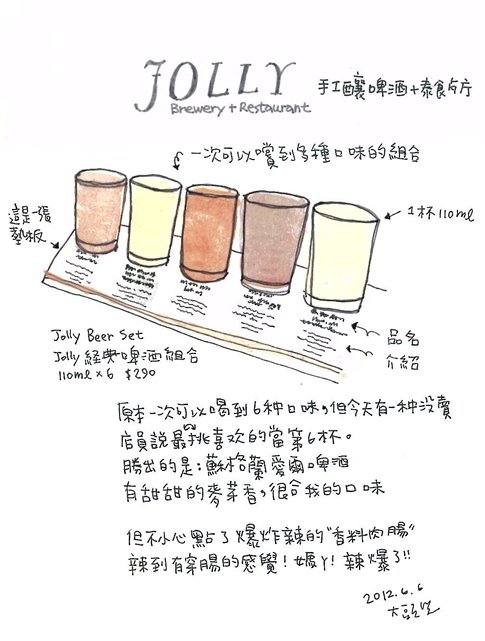 JOLLY
Brewery + Restaurant
手工釀啤酒+泰食片片
一次可以嚐到多種口味的組合
這是一張
墊板
1杯110ml
品名
介紹
Jolly Beer Set
Jolly 經典啤酒組合
110ml x 6 $290
原本一次可以喝到6种口味,但今天有一种沒賣
店員說最挑喜欢的當第6杯。
勝出的是:蘇格蘭愛爾啤酒
有甜甜的麥芽香,很合我的口味
但不小心點了爆炸辣的"香料肉腸"
辣到有穿腸的感覺!媽丫!辣爆了!!
2012.6.6